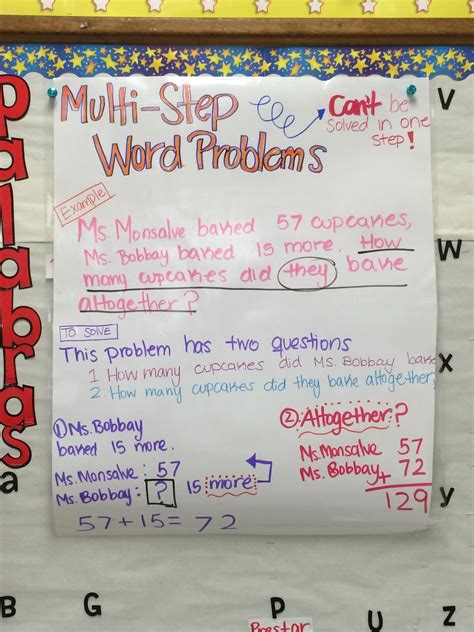 Palabras
Multi-Step
Word Problems
Can't be
solved in one
step!
Example
Ms. Monsalve baked 57 cupcakes,
Ms. Bobbay baked 15 more. How
many cupcakes did they bake
altogether?
TO SOLVE
This problem has two questions
1. How many cupcakes did Ms. Bobbay bake
2. How many cupcakes did they bake altogether
① Ms. Bobbay
baked 15 more.
Ms. Monsalve: 57
Ms. Bobbay: ? 15 more
57+15= 72
② Altogether?
Ms. Monsalve 57
Ms. Bobbay + 72
129
V
W
X
y
a
B G P U Z